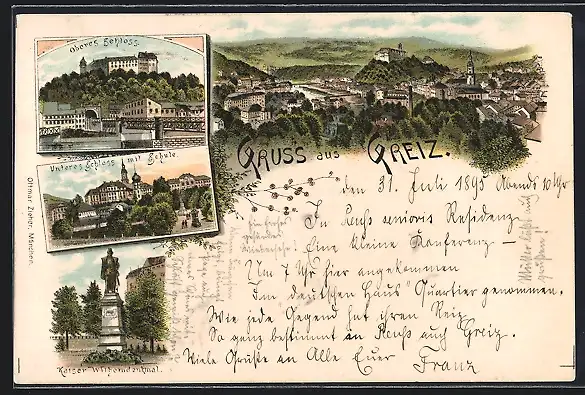 Oberes Schloss.
Unteres Schloss mit Schule.
Kaiser Wilhelmdenkmal.
Ottmar Zieher, München.
GRUSS aus GREIZ.
den 31. Juli 1895 Abends 10 Uhr
In Reuß senioris Residenz
Eine kleine Konferenz –
Um 7 Uhr hier angekommen
Im deutschen Haus Quartier genommen.
Wie jede Gegend hat ihren Reiz
So ganz bestimmt in Reuß auch Greiz.
Viele Grüße an Alle Euer Franz